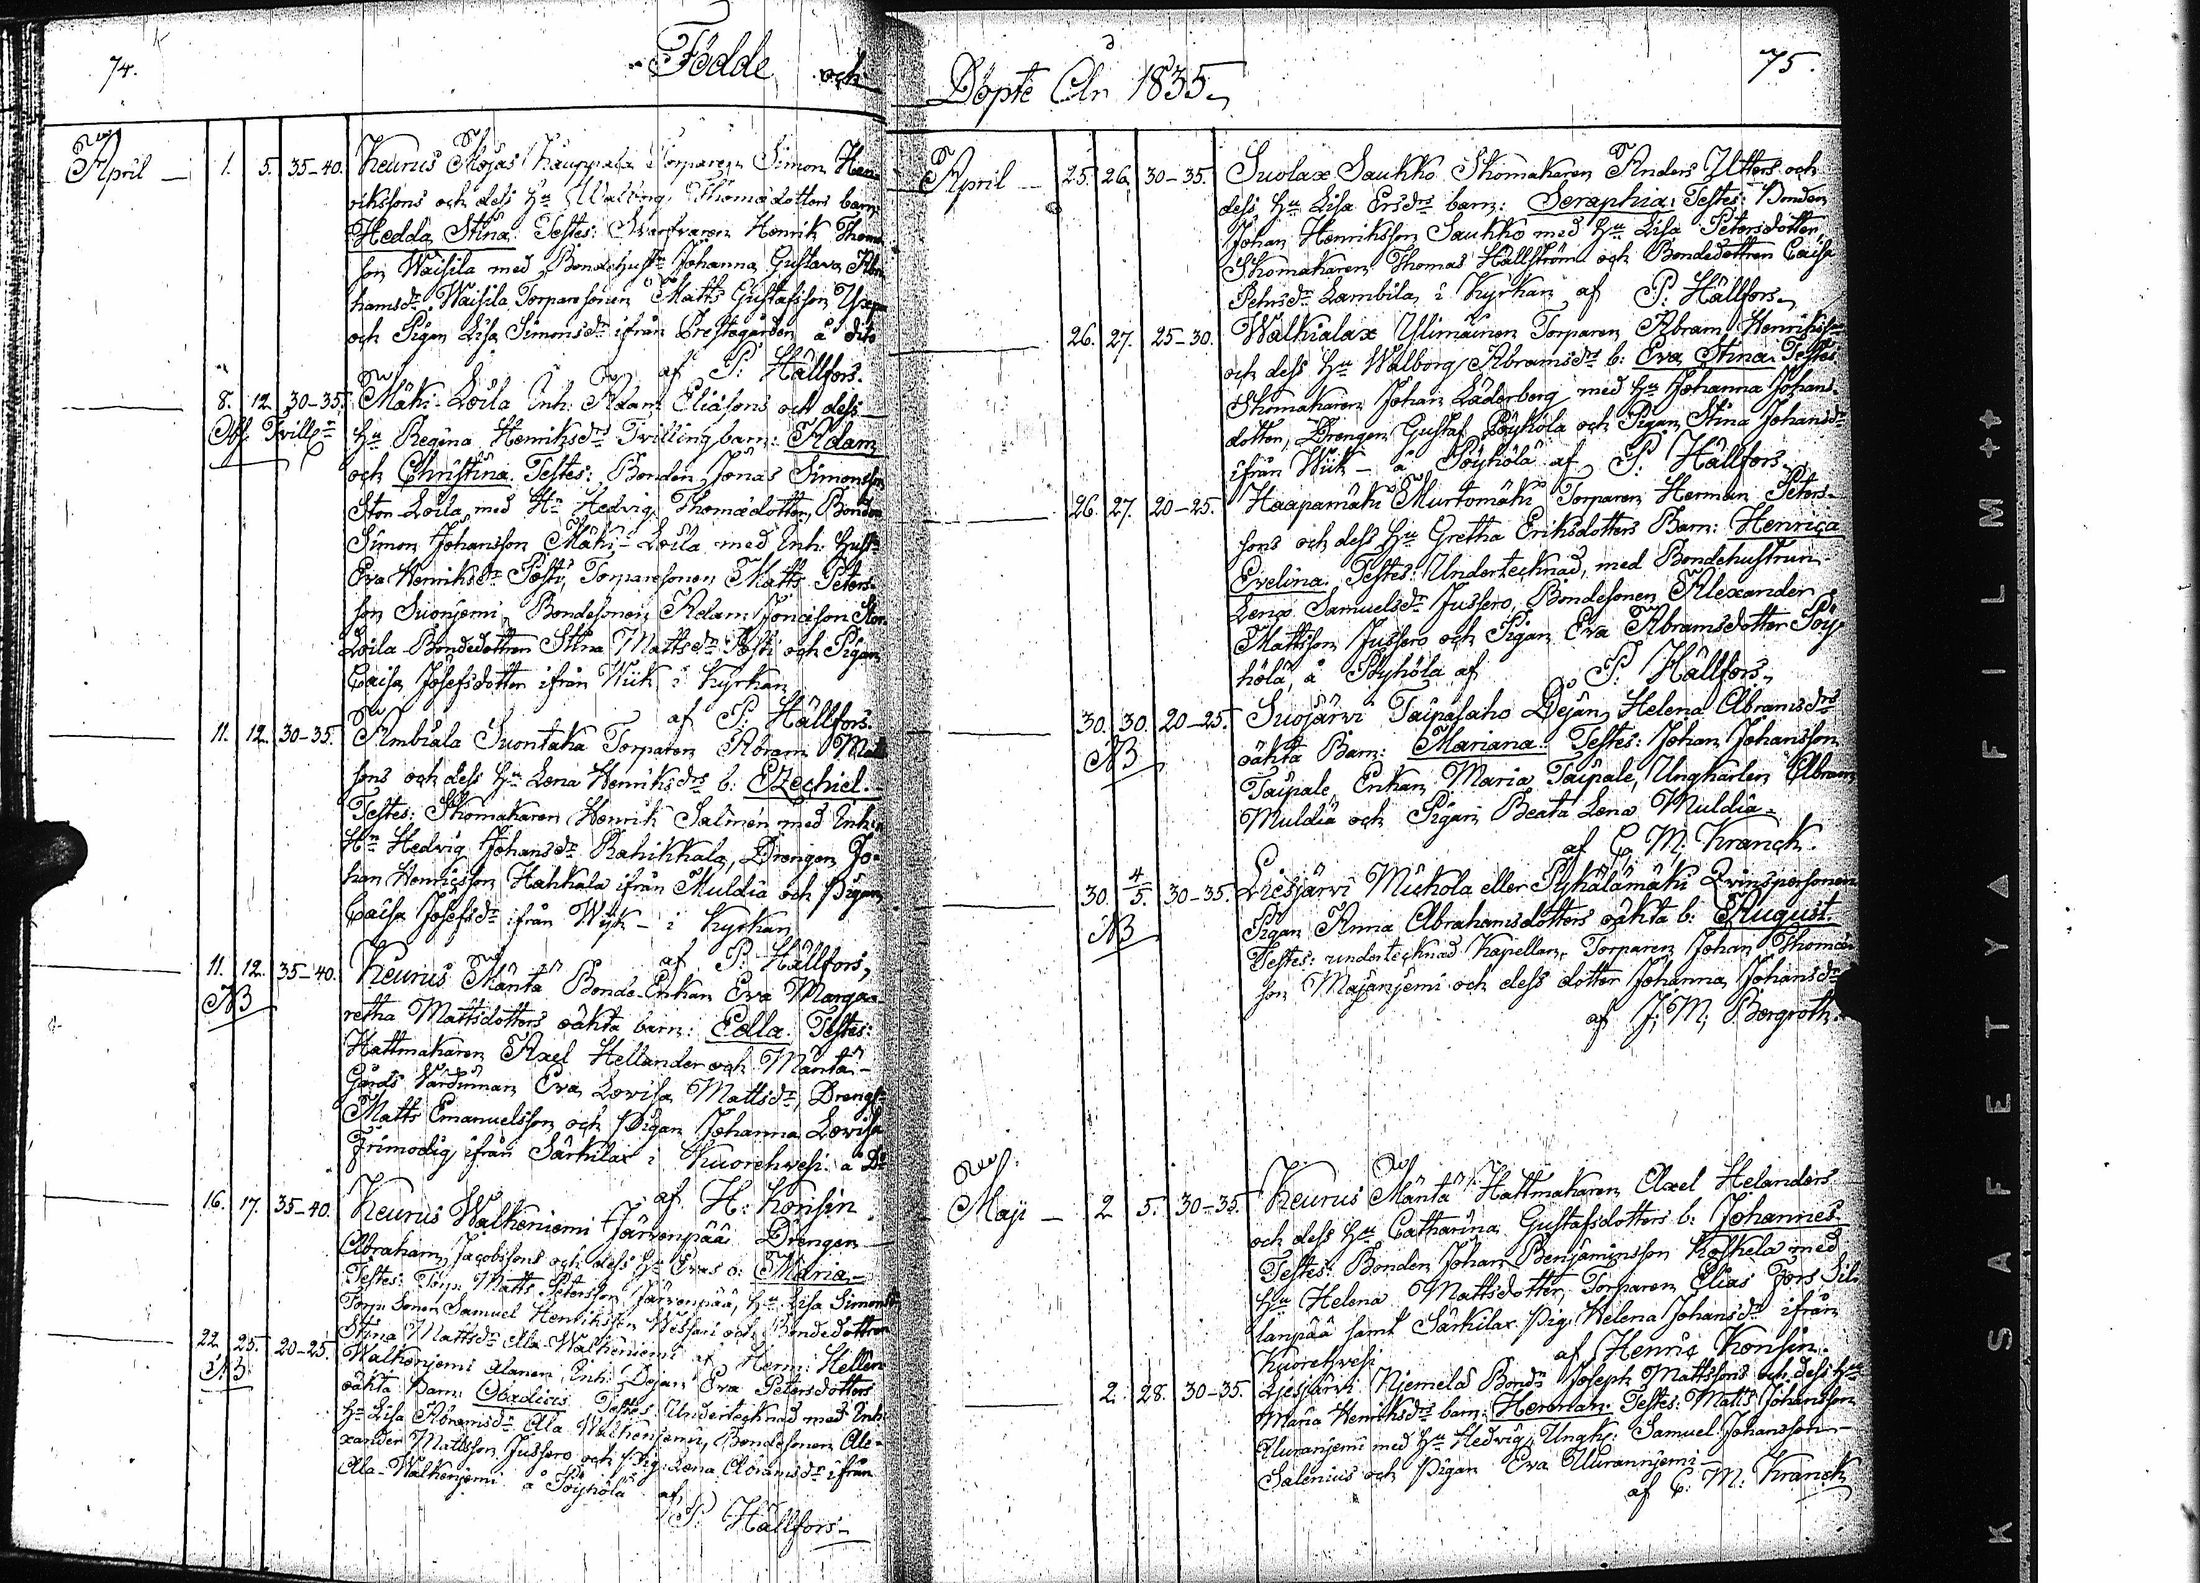 74.
Födde och
April — 1. 5. 35–40. Keurus Kojas Kauppala Torparen Simon Hen-
rikssons och dess Hu Walborg Thomædotters barn
Hedda Stina. Testes: Henrik Thom
son Waisila med Bondehustr Johanna Gustava Abra
hamsdr Waisila Torparesonen Matts Gustafsson
och Pigan Lisa Simonsdr ifrån Prestegården å dito
af P. Hällfors.
8. 12. 30–35. Mäki-Loila Inh: Adam Eliæsons och dess
Hu Regina Henriksdrs Tvillingbarn: Adam
och Christina. Testes: Bonden Jonas Simonsson
Stor Loila med Hu Hedvig Thomædotter, Bonden
Simon Johansson Mäki-Loila med Inh: Hustr
Eva Henriksdr Posti, Torparesonen Matts Peters-
son Suonjemi, Bondesonen Adam Jonæson Stor
Loila Bondedottren Stina Mattsdr Posti och Pigan
Caisa Josefsdotter ifrån Wiik i Kyrkan
af P. Hällfors.
11. 12. 30–35. Ambiala Suontaka Torparen Abram Matts
sons och dess Hu Lena Henriksdrs b: Ezechiel.
Testes: Skomakaren Henrik Salmen med Inh:
Hu Hedvig Johansdr Rahikkala, Drengen Jo-
han Henricsson Hahkala ifrån Muldia och Pigan
Caisa Josefsdr ifrån Wijk – i Kyrkan
af P. Hällfors,
11. 12. 35–40. Keurus Mänta Bonde-Enkan Eva Marga-
NB
retha Mattsdotters oäkta barn: Edla. Testes:
Hattmakaren Axel Hellander och Mänta-
Gårds Värdinnan Eva Lovisa Mattsdr, Dreng
Matts Emanuelsson och Pigan Johanna Lovisa
Frimodig ifrån Särkilax i Kuorehwesi å Do
af H: Konsin
16. 17. 35–40. Keurus Walkeniemi Järvenpää Drengen
Abraham Jacobssons och dess Hu Evas b: Maria
Testes: Torp. Matts Petersson Järvenpää, Hu Lisa Simonsdr
Torp. Sonen Samuel Henriksson Wessari och Bondedottren
Stina Mattsdr Ala-Walkeniemi af Herm: Hellén
22. 25. 20–25. Walkenjemi Alanen Inh: Dejan Eva Petersdotters
NB
oäkta Barn: Testes: Undertecknad med Inh:
Hu Lisa Abramsdr Ala Walkenjemi, Bondesonen Ale-
xander Mattsson Jussero och Pig: Lena Abramsdr ifrån
Ala-Walkenjemi å Pöyhölä af
P. Hällfors
75.
Döpte År 1835.
April — 25. 26. 30–35. Suolax Saukko Skomakaren Anders Utters och
dess Hu Lisa Ersdrs barn: Seraphia: Testes: Bonden
Johan Henriksson Saukko med Hu Lisa Petersdotter,
Skomakaren Thomas Hällström och Bondedottren Caisa
Petersdr Lambila i Kyrkan af P. Hällfors
26. 27. 25–30. Walkialax Ylimäinen Torparen Abram Henrikss
och dess Hu Walborg Abramsdrs b: Eva Stina. Testes
Skomakaren Johan Läderberg med Hu Johanna Johans-
dotter, Drengen Gustaf Pöyhölä och Pigan Stina Johansdr
ifrån Wiik – å Pöyhölä af P. Hällfors
26. 27. 20–25. Haapamäki Murtomäki Torparen Herman Peters-
sons och dess Hu Gretha Eriksdotters Barn: Henrica
Evelina. Testes: Undertecknad, med Bondehustrun
Lena Samuelsdr Jussero, Bondesonen Alexander
Mattsson Jussero och Pigan Eva Abramsdotter Pöy-
hölä, å Pöyhöla af P. Hällfors
30. 30. 20–25. Suojärvi Taipalaho Dejan Helena Abramsdrs
NB
oäkta Barn: Mariana. Testes: Johan Johansson
Taipale, Enkan Maria Taipale, Ungkarlen Abram
Muldia och Pigan Beata Lena Muldia
af C. M. Kranck.
30. 4/5. 30–35. Liesjärvi Mickola eller Pykälämäki Qvinspersonen
NB
Pigan Anna Abrahamsdotters oäkta b: August.
Testes: undertecknad Kapellan, Torparen Johan Thomæ-
son Majanjemi och dess dotter Johanna Johansdr
af J. M. Bergroth.
Maji — 2. 5. 30–35. Keurus Mänta Hattmakaren Axel Helanders
och dess Hu Catharina Gustafsdotters b: Johannes
Testes: Bonden Johan Benjaminsson Koskela med
Hu Helena Mattsdotter, Torparen Elias Fors Sil-
lanpää samt Särkilax Pig. Helena Johansdr ifrån
Kuorehvesi af Henric Konsin.
2. 28. 30–35. Liesjärvi Njemelä Bondn Joseph Mattssons och dess Hu
Maria Henriksdrs barn: Herman. Testes: Matts Johansson
Auranjemi med Hu Hedvig, Ungk: Samuel Johansson
Salenius och Pigan Eva Aurannjemi
af C. M. Kranck
K SAFETY FILM